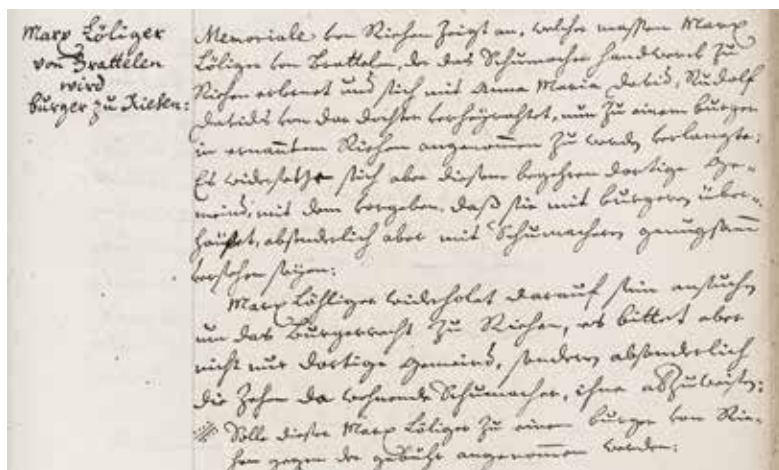 Marx Löliger
von Brattelen
wird
burger zu Riehen:
Memoriale von Riehen zeigt an, welcher massen Marx
Löliger von Bratteln, der das Schumacher handwerck zu
Riehen erlernet und sich mit Anna Maria David, Rudolf
Davids von dar dochter verheyrahtet, nun zu einem burger
in ernantem Riehen angenommen zu werden verlangte:
Es widersetze sich aber diesem begehren dortige Ge-
meind, mit dem vorgeben, daß sie mit burgeren über-
häufet, absonderlich aber mit Schumachern genugsam
versehen seyen:
Marx Löhliger widerholet darauf sein ansuchen
um das Burgerrecht zu Riehen, es bittet aber
nicht nur dortige Gemeind, sondern absonderlich
die Zehn da wohnende Schumacher, ihne abzuweisen:
Solle dieser Marx Löliger zu einem burger von Rie-
hen gegen der gebühr angenommen werden: